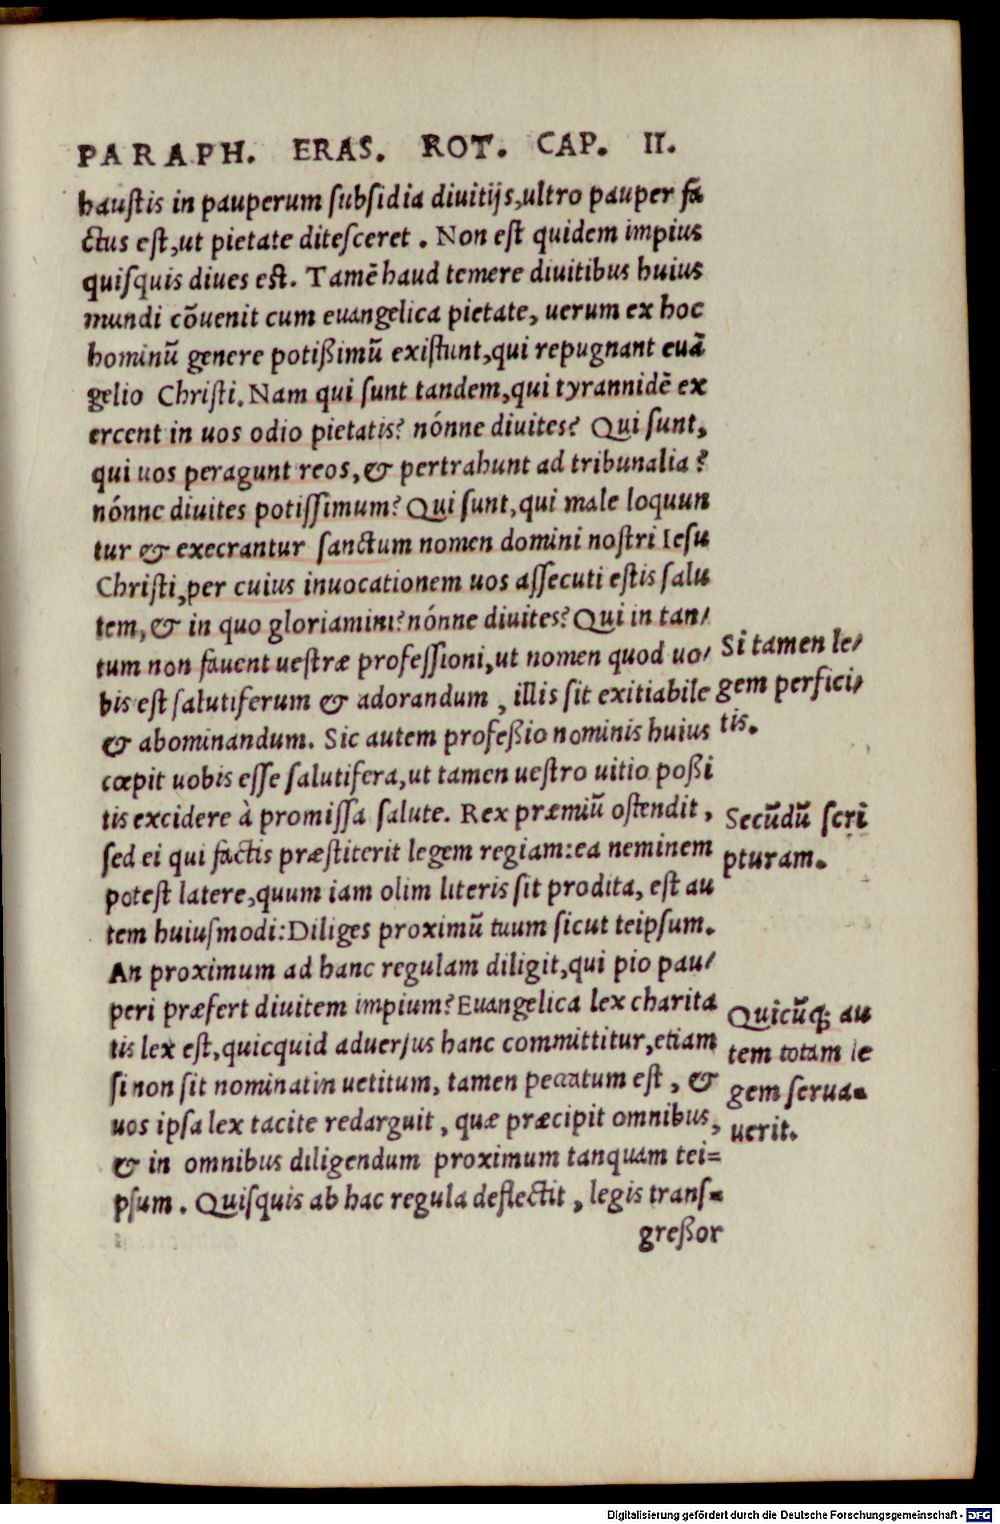 PARAPH. ERAS. ROT. CAP. II.
hauſtis in pauperum ſubſidia diuitijs, ultro pauper fa
ctus eſt, ut pietate diteſceret. Non eſt quidem impius
quiſquis diues eſt. Tamē haud temere diuitibus huius
mundi cōuenit cum euangelica pietate, uerum ex hoc
hominū genere potißimū exiſtunt, qui repugnant euā
gelio Chriſti. Nam qui ſunt tandem, qui tyrannidē ex
ercent in uos odio pietatis? nónne diuites? Qui ſunt,
qui uos peragunt reos, & pertrahunt ad tribunalia?
nónne diuites potiſſimum? Qui ſunt, qui male loquun
tur & execrantur ſanctum nomen domini noſtri Ieſu
Chriſti, per cuius inuocationem uos aſſecuti eſtis ſalu
tem, & in quo gloriamini? nónne diuites? Qui in tan/
tum non fauent ueſtræ profeſſioni, ut nomen quod uo/
bis eſt ſalutiferum & adorandum, illis ſit exitiabile
& abominandum. Sic autem profeßio nominis huius
cœpit uobis eſſe ſalutifera, ut tamen ueſtro uitio poßi
tis excidere à promiſſa ſalute. Rex præmiū oſtendit,
ſed ei qui factis præſtiterit legem regiam: ea neminem
poteſt latere, quum iam olim literis ſit prodita, eſt au
tem huiuſmodi: Diliges proximū tuum ſicut teipſum.
An proximum ad hanc regulam diligit, qui pio pau/
peri præfert diuitem impium? Euangelica lex charita
tis lex eſt, quicquid aduerſus hanc committitur, etiam
ſi non ſit nominatin uetitum, tamen peccatum eſt, &
uos ipſa lex tacite redarguit, quæ præcipit omnibus,
& in omnibus diligendum proximum tanquam tei=
pſum. Quiſquis ab hac regula deflectit, legis tranſ=
greßor
Si tamen le/
gem perfici/
tis.
Secūdū ſcri
pturam.
Quicūq; au
tem totam le
gem ſerua=
uerit.
Digitalisierung gefördert durch die Deutsche Forschungsgemeinschaft - DFG